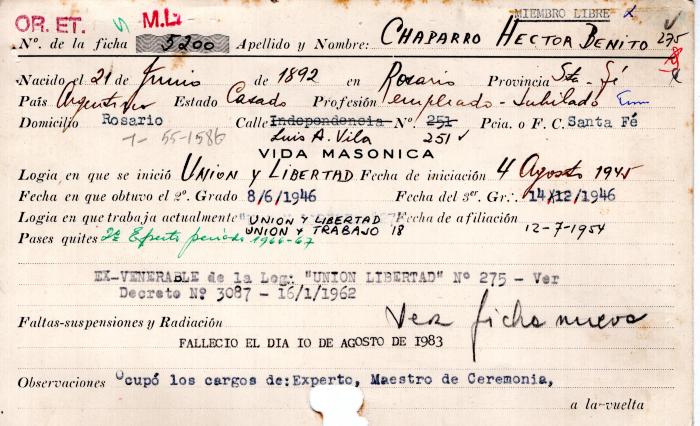 MIEMBRO LIBRE
OR. ET. M.L.
Nº. de la ficha 5200 Apellido y Nombre: CHAPARRO HECTOR BENITO 275
Nacido el 21 de Junio de 1892 en Rosario Provincia Sta. Fé
País Argentino Estado Casado Profesión empleado - Jubilado
Domicilio Rosario Calle Independencia Nº. 251 Pcia. o F. C. Santa Fé
T- 55-1586 Luis A. Vila 251
VIDA MASONICA
Logia en que se inició UNION Y LIBERTAD Fecha de iniciación 4 Agosto 1945
Fecha en que obtuvo el 2º. Grado 8/6/1946 Fecha del 3er. Gr.·. 14/12/1946
Logia en que trabaja actualmente UNION Y LIBERTAD Fecha de afiliación
Pases quites 2º Experto período 1966-67 UNION Y TRABAJO 18 12-7-1954
EX-VENERABLE de la Log: "UNION LIBERTAD" Nº 275 - Ver
Decreto Nº 3087 - 16/1/1962
Faltas-suspensiones y Radiación Ver ficha nueva
FALLECIO EL DIA 10 DE AGOSTO DE 1983
Observaciones Ocupó los cargos de: Experto, Maestro de Ceremonia,
a la vuelta